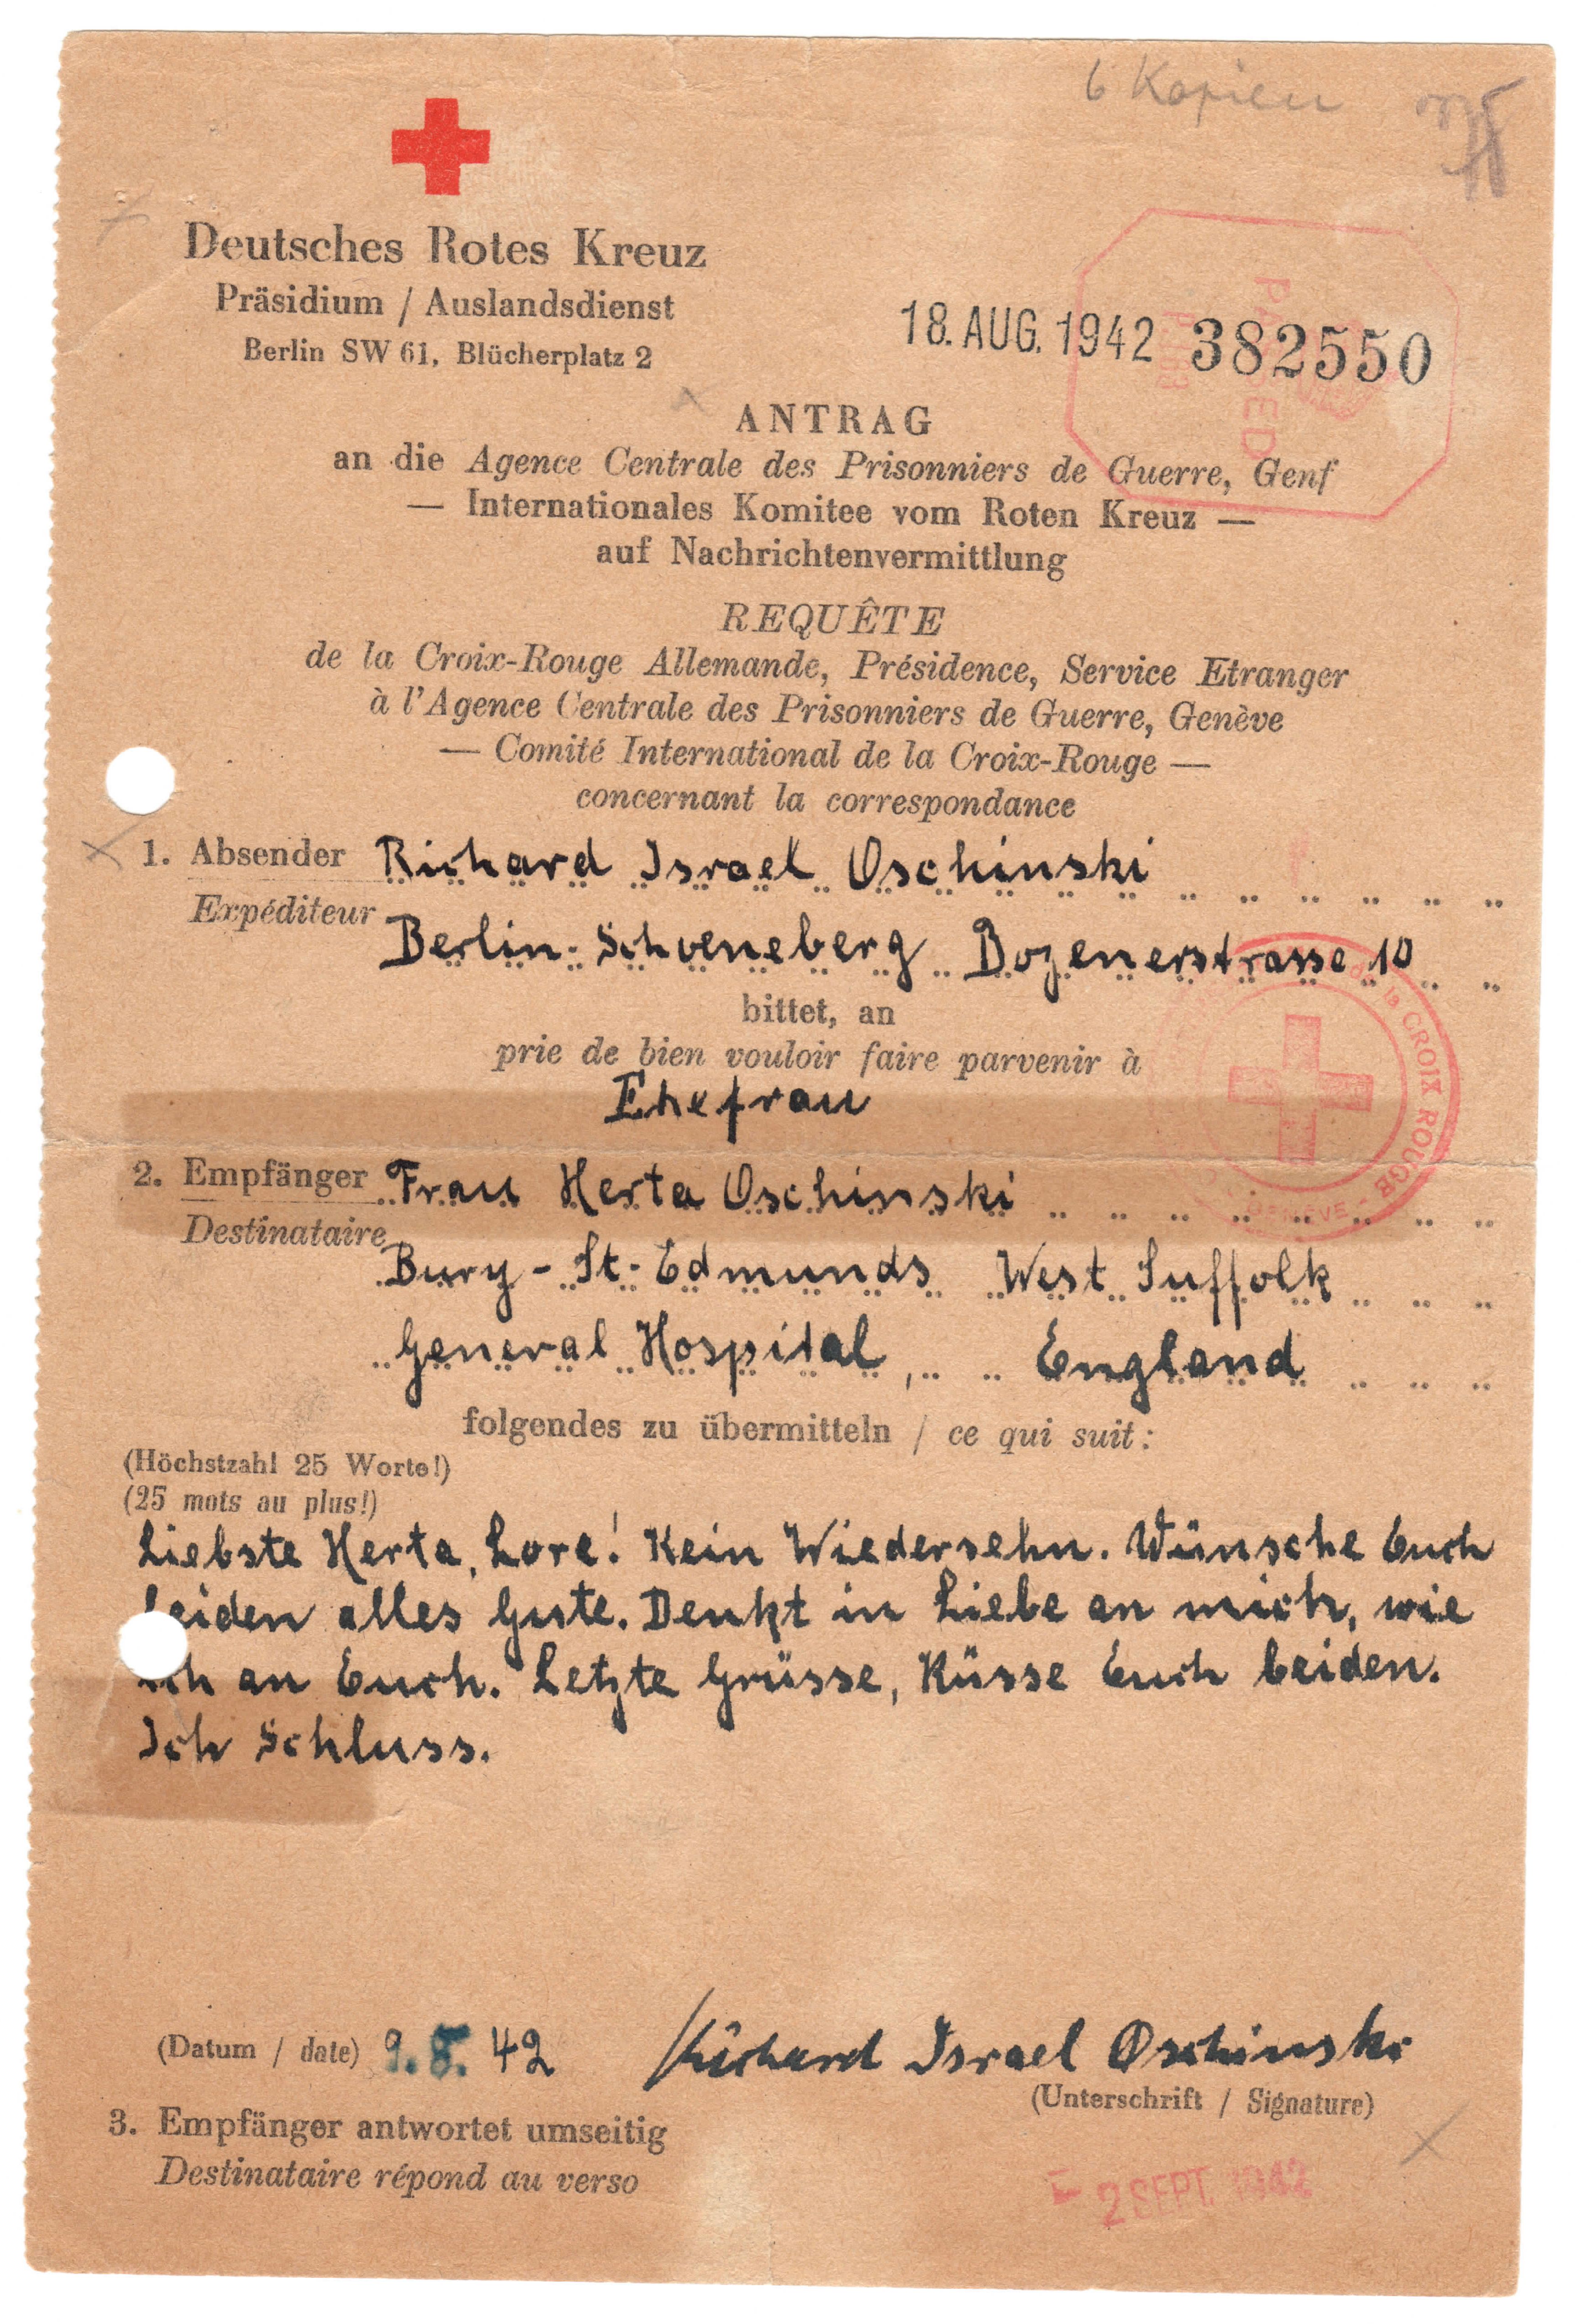 6 Kopien
Deutsches Rotes Kreuz
Präsidium / Auslandsdienst
Berlin SW 61, Blücherplatz 2
18. AUG. 1942 382550
ANTRAG
an die Agence Centrale des Prisonniers de Guerre, Genf
— Internationales Komitee vom Roten Kreuz —
auf Nachrichtenvermittlung
REQUÊTE
de la Croix-Rouge Allemande, Présidence, Service Etranger
à l'Agence Centrale des Prisonniers de Guerre, Genève
— Comité International de la Croix-Rouge —
concernant la correspondance
1. Absender Richard Israel Oschinski
Expéditeur
Berlin-Schoeneberg Bozenerstrasse 10
bittet, an
prie de bien vouloir faire parvenir à
la CROIX ROUGE - GENÈVE -
Ehefrau
2. Empfänger Frau Herta Oschinski
Destinataire
Bury-St-Edmunds West Suffolk
General Hospital, England
folgendes zu übermitteln / ce qui suit:
(Höchstzahl 25 Worte!)
(25 mots au plus!)
Liebste Herta, Lore! Kein Wiedersehn. Wünsche Euch
beiden alles Gute. Denkt in Liebe an mich, wie
ich an Euch. Letzte Grüsse, Küsse Euch beiden.
Ich Schluss.
(Datum / date) 9.8.42 Richard Israel Oschinski
(Unterschrift / Signature)
3. Empfänger antwortet umseitig
Destinataire répond au verso
- 2 SEPT. 1942